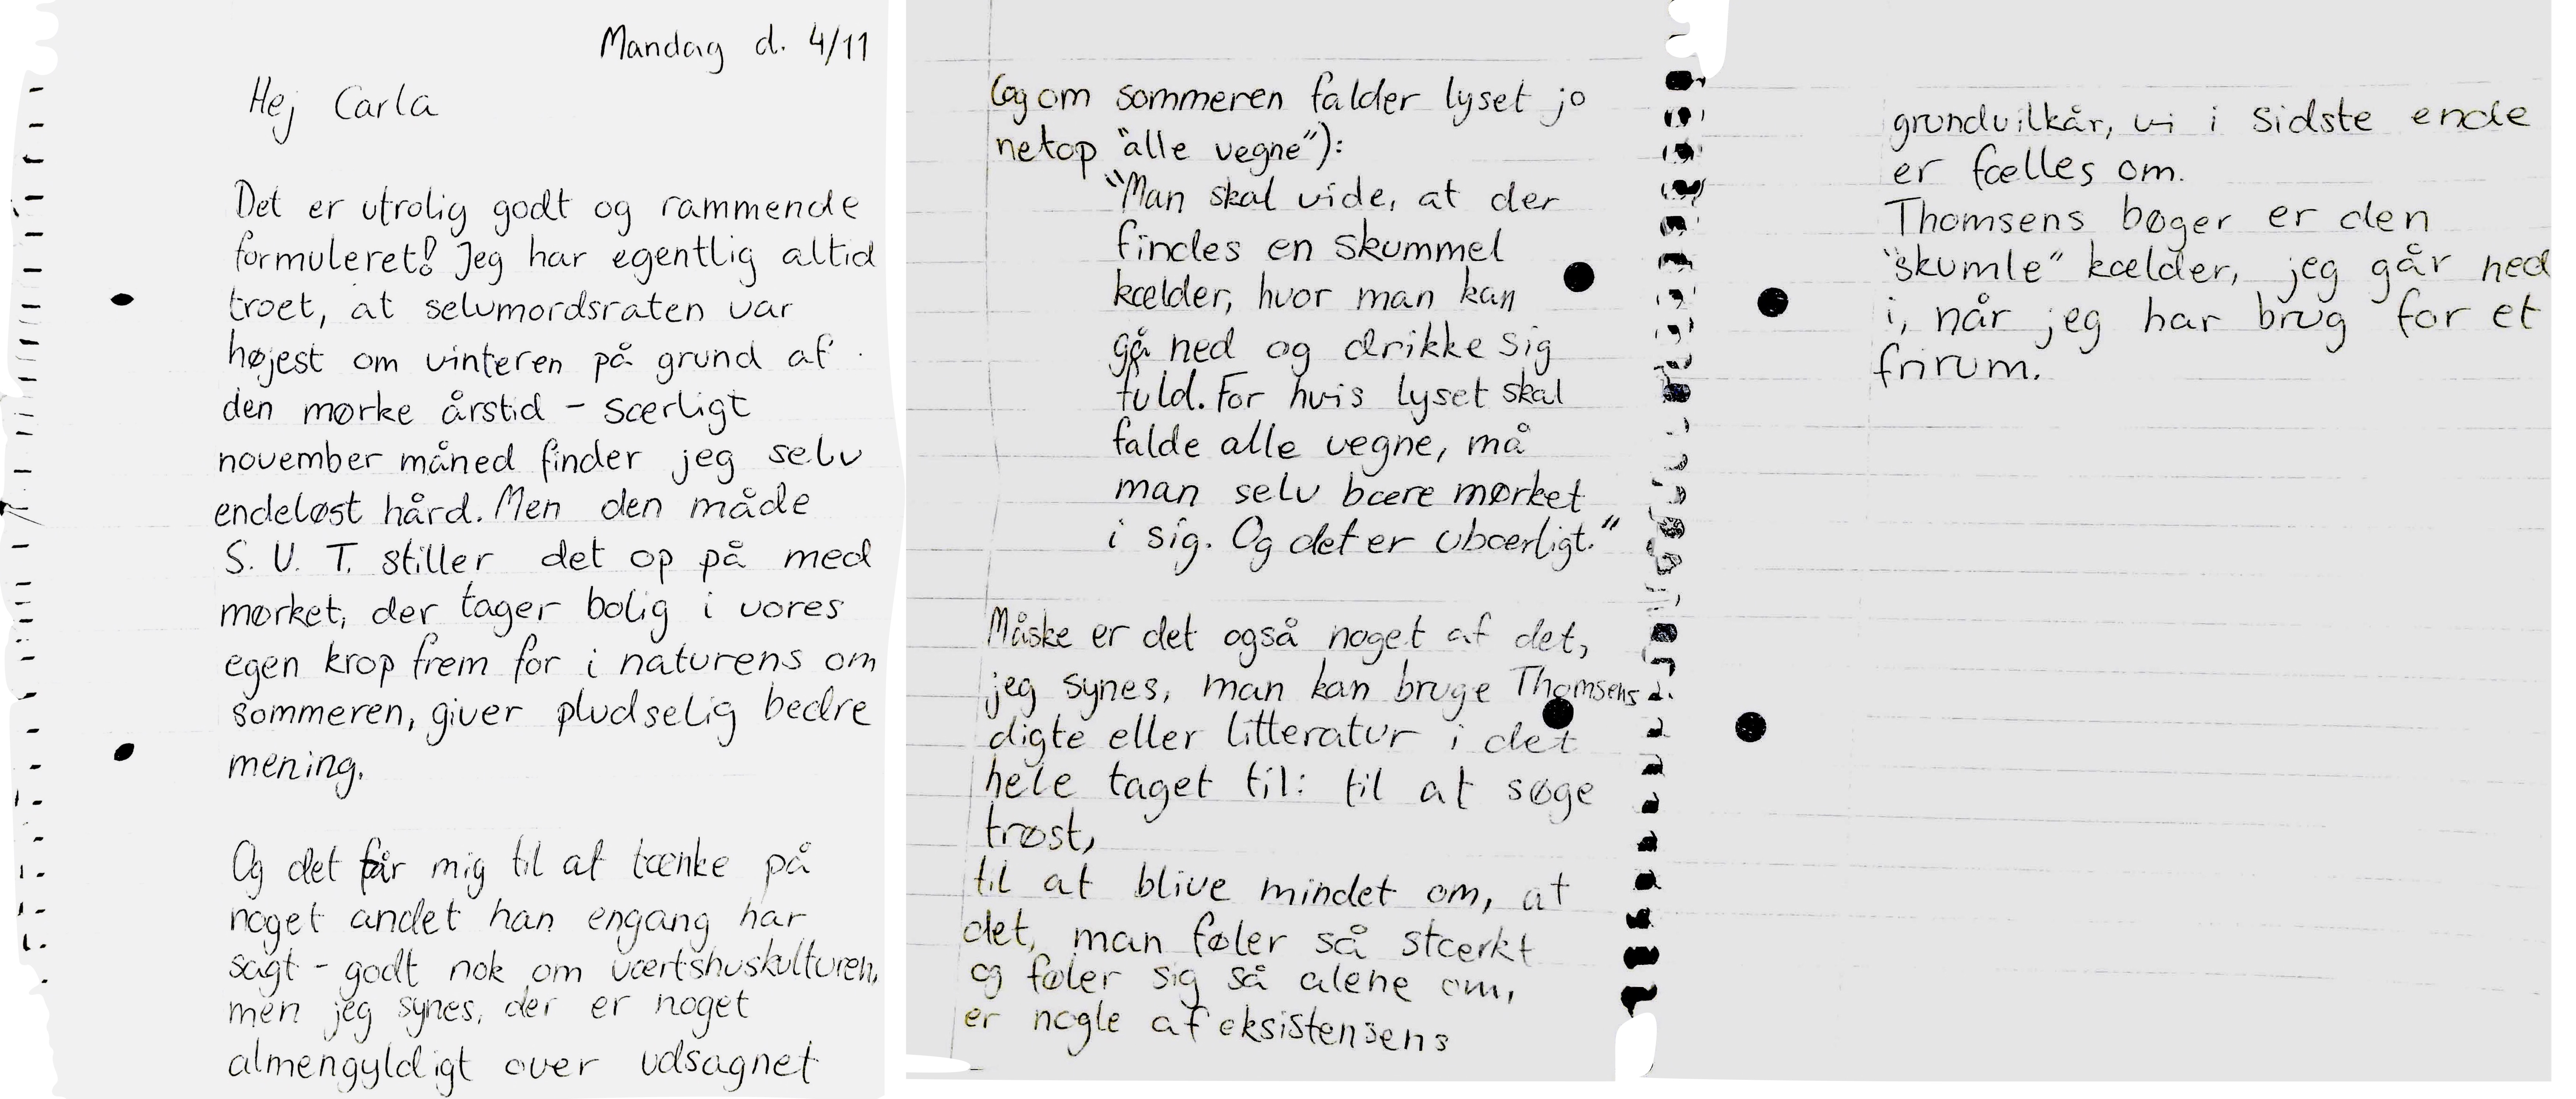 Mandag d. 4/11
Hej Carla
Det er utrolig godt og rammende
formuleret! Jeg har egentlig altid
troet, at selvmordsraten var
højest om vinteren på grund af
den mørke årstid - særligt
november måned finder jeg selv
endeløst hård. Men den måde
S. U. T. stiller det op på med
mørket, der tager bolig i vores
egen krop frem for i naturens om
sommeren, giver pludselig bedre
mening.
Og det får mig til at tænke på
noget andet han engang har
sagt - godt nok om værtshuskulturen,
men jeg synes, der er noget
almengyldigt over udsagnet
(og om sommeren falder lyset jo
netop "alle vegne"):
"Man skal vide, at der
findes en skummel
kælder, hvor man kan
gå ned og drikke sig
fuld. For hvis lyset skal
falde alle vegne, må
man selv bære mørket
i sig. Og det er ubærligt."
Måske er det også noget af det,
jeg synes, man kan bruge Thomsens
digte eller litteratur i det
hele taget til: til at søge
trøst,
til at blive mindet om, at
det, man føler så stærkt
og føler sig så alene om,
er nogle af eksistensens
grundvilkår, vi i sidste ende
er fælles om.
Thomsens bøger er den
"skumle" kælder, jeg går ned
i, når jeg har brug for et
frirum.